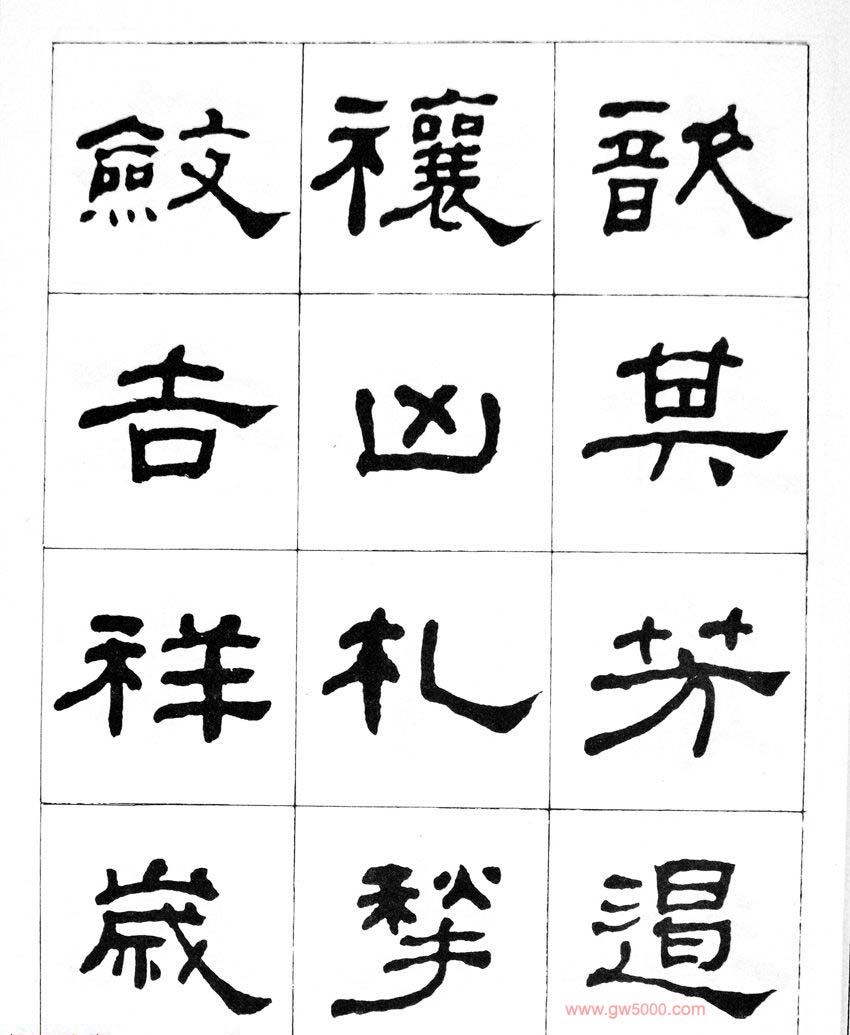 歆其芳遏
禳凶札揫
斂吉祥歲
www.gw5000.com